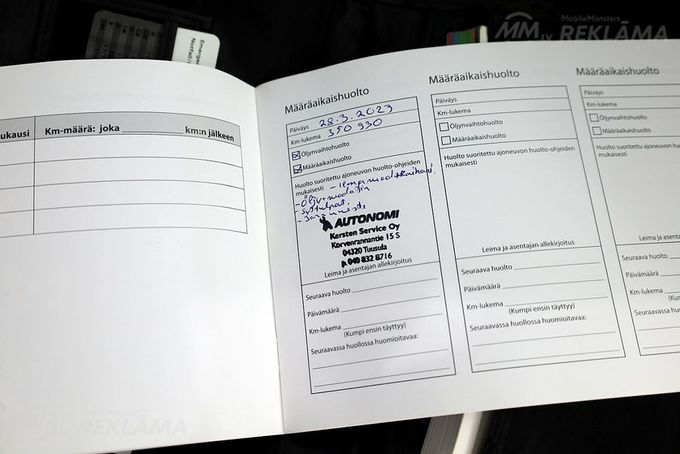 MobileMonsters
MM.LV REKLĀMA
Emerge
ukausi
Km-määrä: joka km:n jälkeen
Määräaikaishuolto
Päiväys 28.3.2023
Km-lukema 350 930
Öljynvaihtohuolto
Määräaikaishuolto
Huolto suoritettu ajoneuvon huolto-ohjeiden
mukaisesti
AUTONOMI
Kersten Service Oy
Korvenrannantie 15 S
04320 Tuusula
p. 040 832 8716
Leima ja asentajan allekirjoitus
Seuraava huolto
Päivämäärä
Km-lukema
(Kumpi ensin täyttyy)
Seuraavassa huollossa huomioitavaa:
Määräaikaishuolto
Päiväys
Km-lukema
Öljynvaihtohuolto
Määräaikaishuolto
Huolto suoritettu ajoneuvon huolto-ohjeiden
mukaisesti
Leima ja asentajan allekirjoitus
Seuraava huolto
Päivämäärä
Km-lukema
(Kumpi ensin täyttyy)
Seuraavassa huollossa huomioitavaa:
Määräaikaishuolto
Päiväys
Km-lukema
Öljynvaihtohuolto
Määräaikaishuolto
Huolto suoritettu
mukaisesti
Leima
Seuraava huolto
Päivämäärä
Km-lukema
Seuraavassa
REKLĀMA